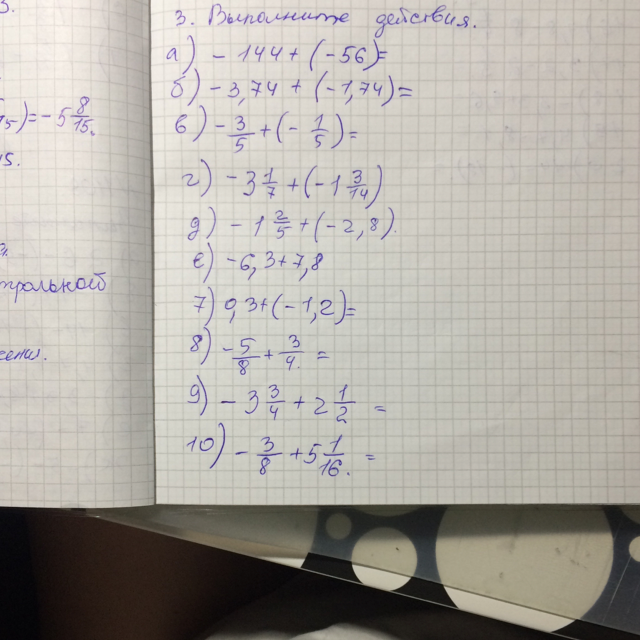 3.
5)=-5 8/15.
15.
трольной
сения.
3. Выполните действия.
а) - 144 + (-56)=
б) - 3,74 + (-1,74)=
в) - 3/5 + (- 1/5)=
г) - 3 1/7 + (-1 3/14)
д) - 1 2/5 + (-2,8).
е) -6,3+7,8
7) 0,3+(-1,2)=
8) - 5/8 + 3/4. =
9) - 3 3/4 + 2 1/2 =
10) - 3/8 + 5 1/16. =